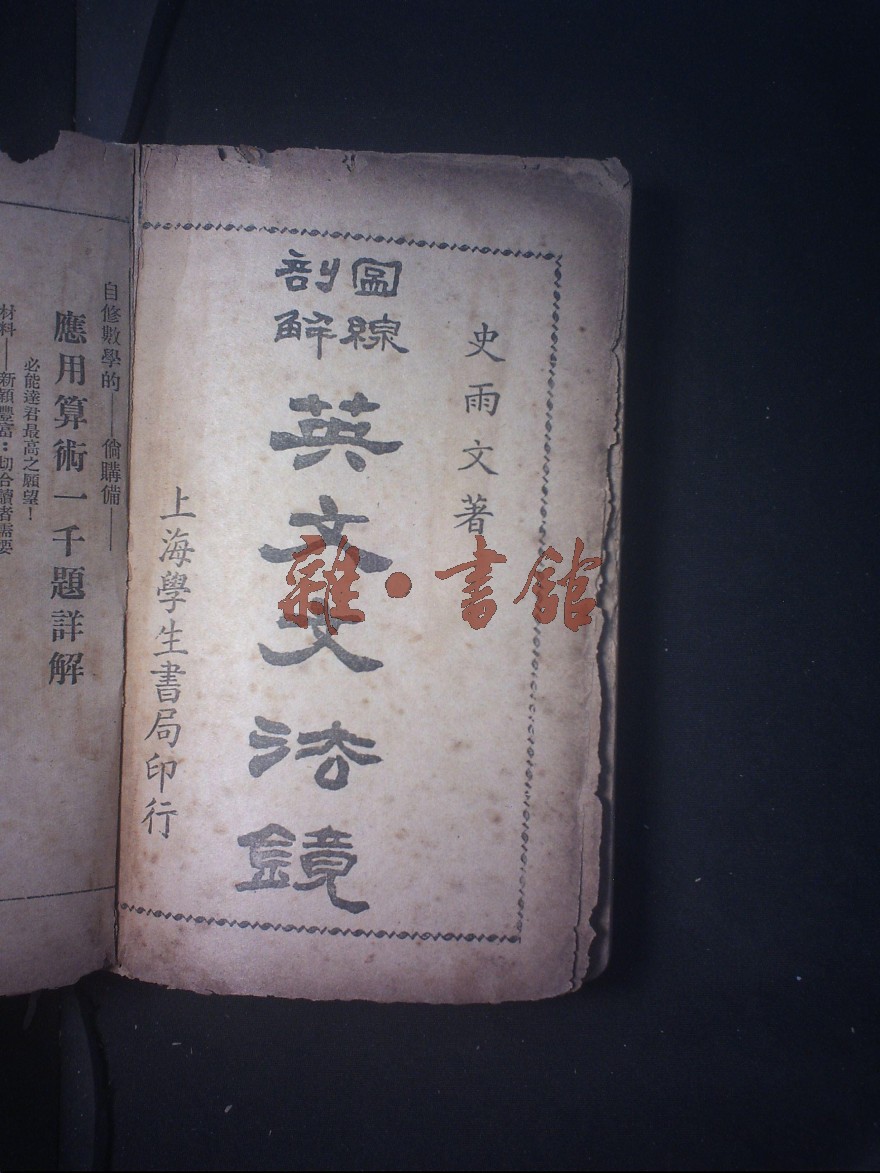 史雨文著
圖線
剖解
英文文法鏡
上海學生書局印行
雜·書館
自修數學的——倘購備——
應用算術一千題詳解
必能達君最高之願望！
材料——新穎豐富：切合讀者需要